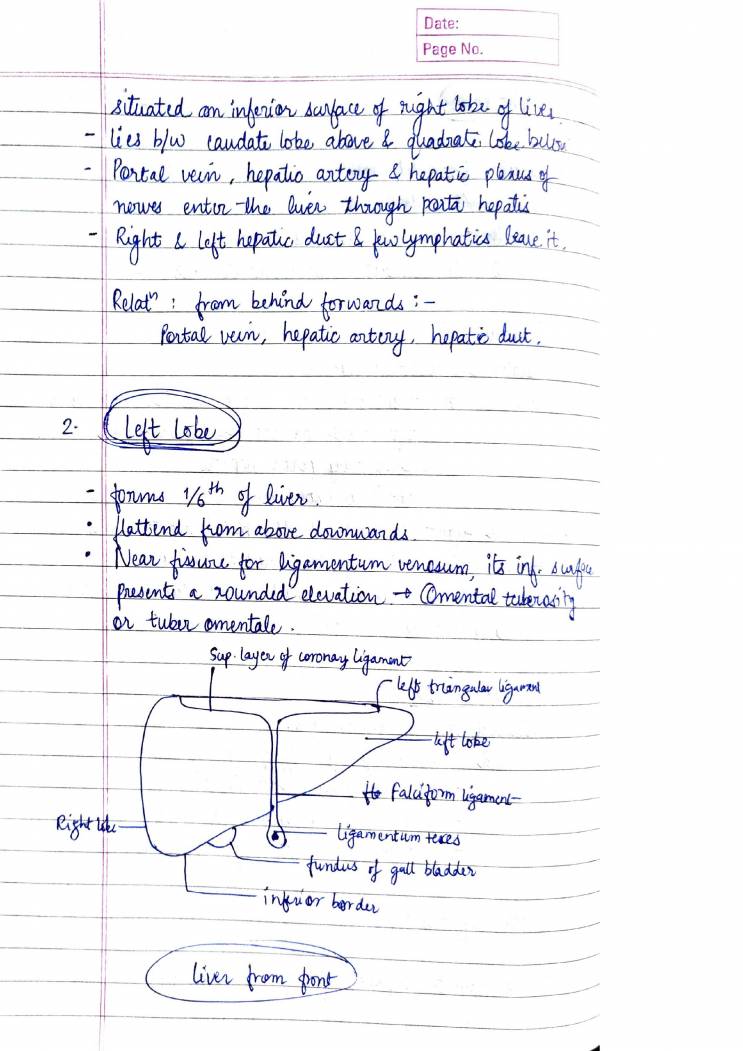 Date:
Page No.
situated on inferior surface of right lobe of liver
- lies b/w caudate lobe above & quadrate lobe below
- Portal vein, hepatic artery & hepatic plexus of
nerves enter the liver through porta hepatis
- Right & left hepatic duct & few lymphatics leave it.
Relatⁿ : from behind forwards :-
Portal vein, hepatic artery, hepatic duct.
2. Left Lobe
- forms 1/6th of liver.
• flattend from above downwards.
• Near fissure for ligamentum venosum, its inf. surface
presents a rounded elevation → Omental tuberosity
or tuber omentale.
Sup. layer of coronay ligament
left triangular ligament
left lobe
Falciform ligament
Right lobe
Ligamentum teres
fundus of gall bladder
inferior border
liver from front